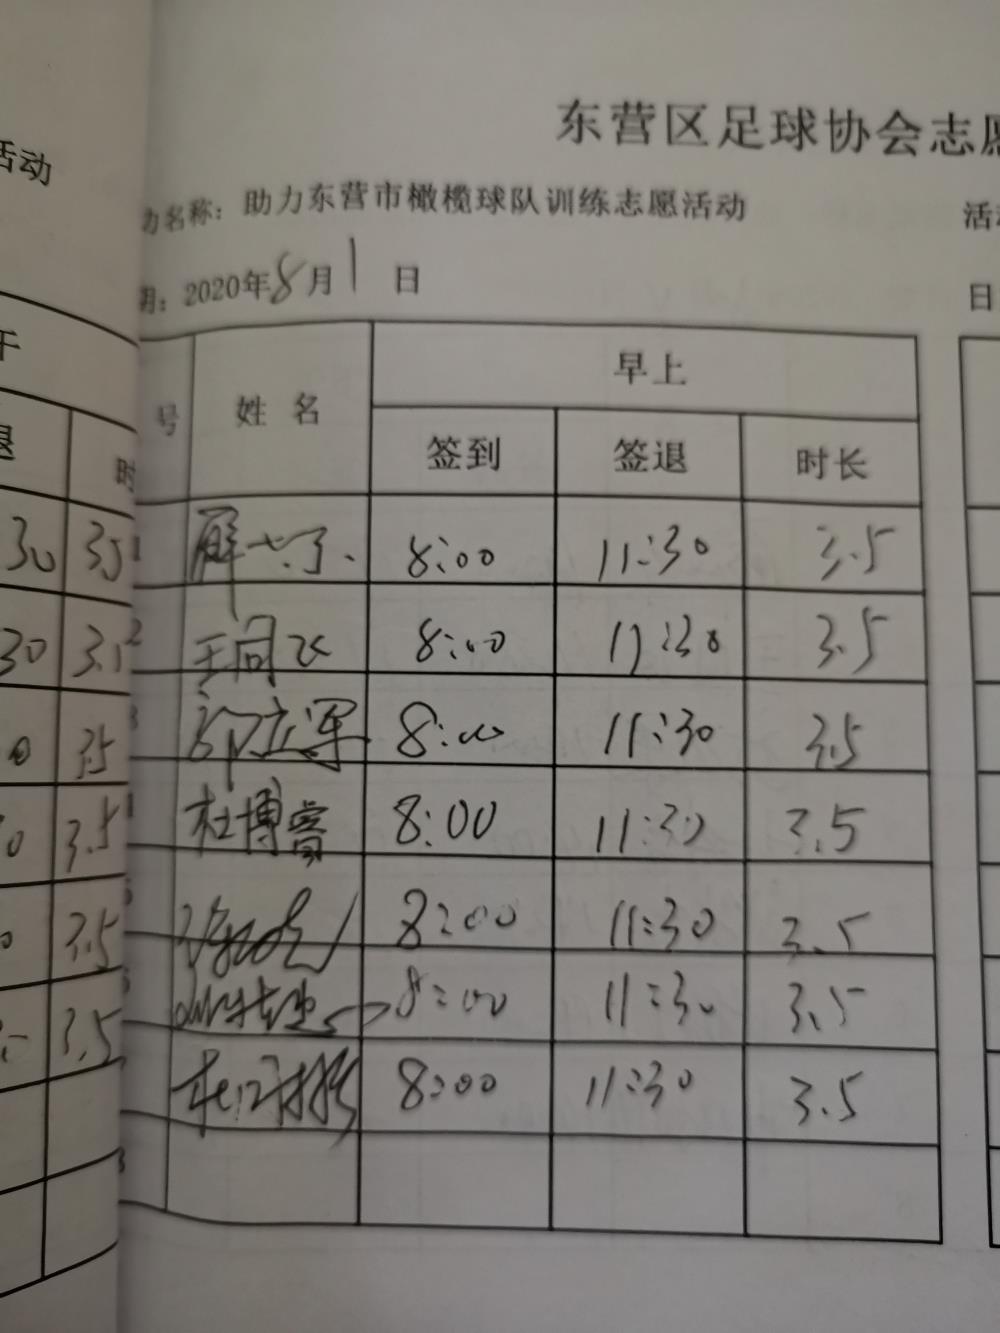 东营区足球协会志愿
活动
动名称：助力东营市橄榄球队训练志愿活动
活动
期：2020年8月1日
日
号 姓名 早上
签到 签退 时长
退 时
30 3.5
1 8:00 11:30 3.5
30 3.5
2 王同飞 8:00 11:30 3.5
0 3.5
3 郭立军 8:00 11:30 3.5
0 3.5
4 杜博睿 8:00 11:30 3.5
0 3.5
5 8:00 11:30 3.5
3.5
6 8:00 11:30 3.5
8:00 11:30 3.5
8